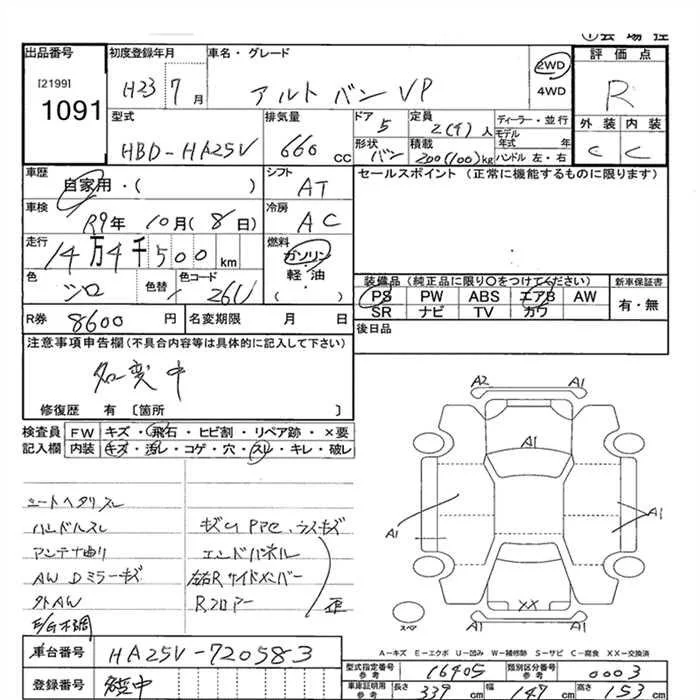 ①会場控
出品番号
[2199]
1091
初度登録年月
H23 7月
車名・グレード
アルト バン VP
2WD
4WD
評価点
R
外装 内装
C C
型式
HBD-HA25V
排気量
660 cc
ドア
5
形状
バン
定員
2(4)人
積載
200(100)kg
ディーラー・並行
モデル
年式 年
ハンドル 左・右
車歴
自家用・( )
シフト
AT
セールスポイント (正常に機能するものに限ります)
車検
R9年 10月(8日)
冷房
AC
走行
14万4千500km
燃料
ガソリン
軽・油
( )
色
シロ
色替
色コード
26U
装備品 (純正品に限り〇をつけてください)
PS PW ABS エアB AW
SR ナビ TV カワ
新車保証書
有・無
R券 8600 円
名変期限 月 日
後日品
注意事項申告欄 (不具合内容等は具体的に記入して下さい)
名変中
修復歴 有 [箇所 ]
検査員 FW キズ・飛石・ヒビ割・リペア跡・×要
記入欄 内装 キズ・汚レ・コゲ・穴・スレ・キレ・破レ
シートヘタリスレ
ハンドルスレ
アンテナ曲リ
AW Dミラーキズ
外AW
E/G不調
エンドパネル
左右Rサイドメンバー
Rフロアー
歪
A2 A1
A1
A1 A1
XX
A1 A1
スペア
A-キズ E-エクボ U-凹み W-補修跡 S-サビ C-腐食 XX-交換済
車台番号 HA25V-720583
型式指定番号
参考
16405
類別区分番号
参考
0003
登録番号
車庫証明用
参考
長さ 339 cm 幅 147 cm 高さ 153 cm